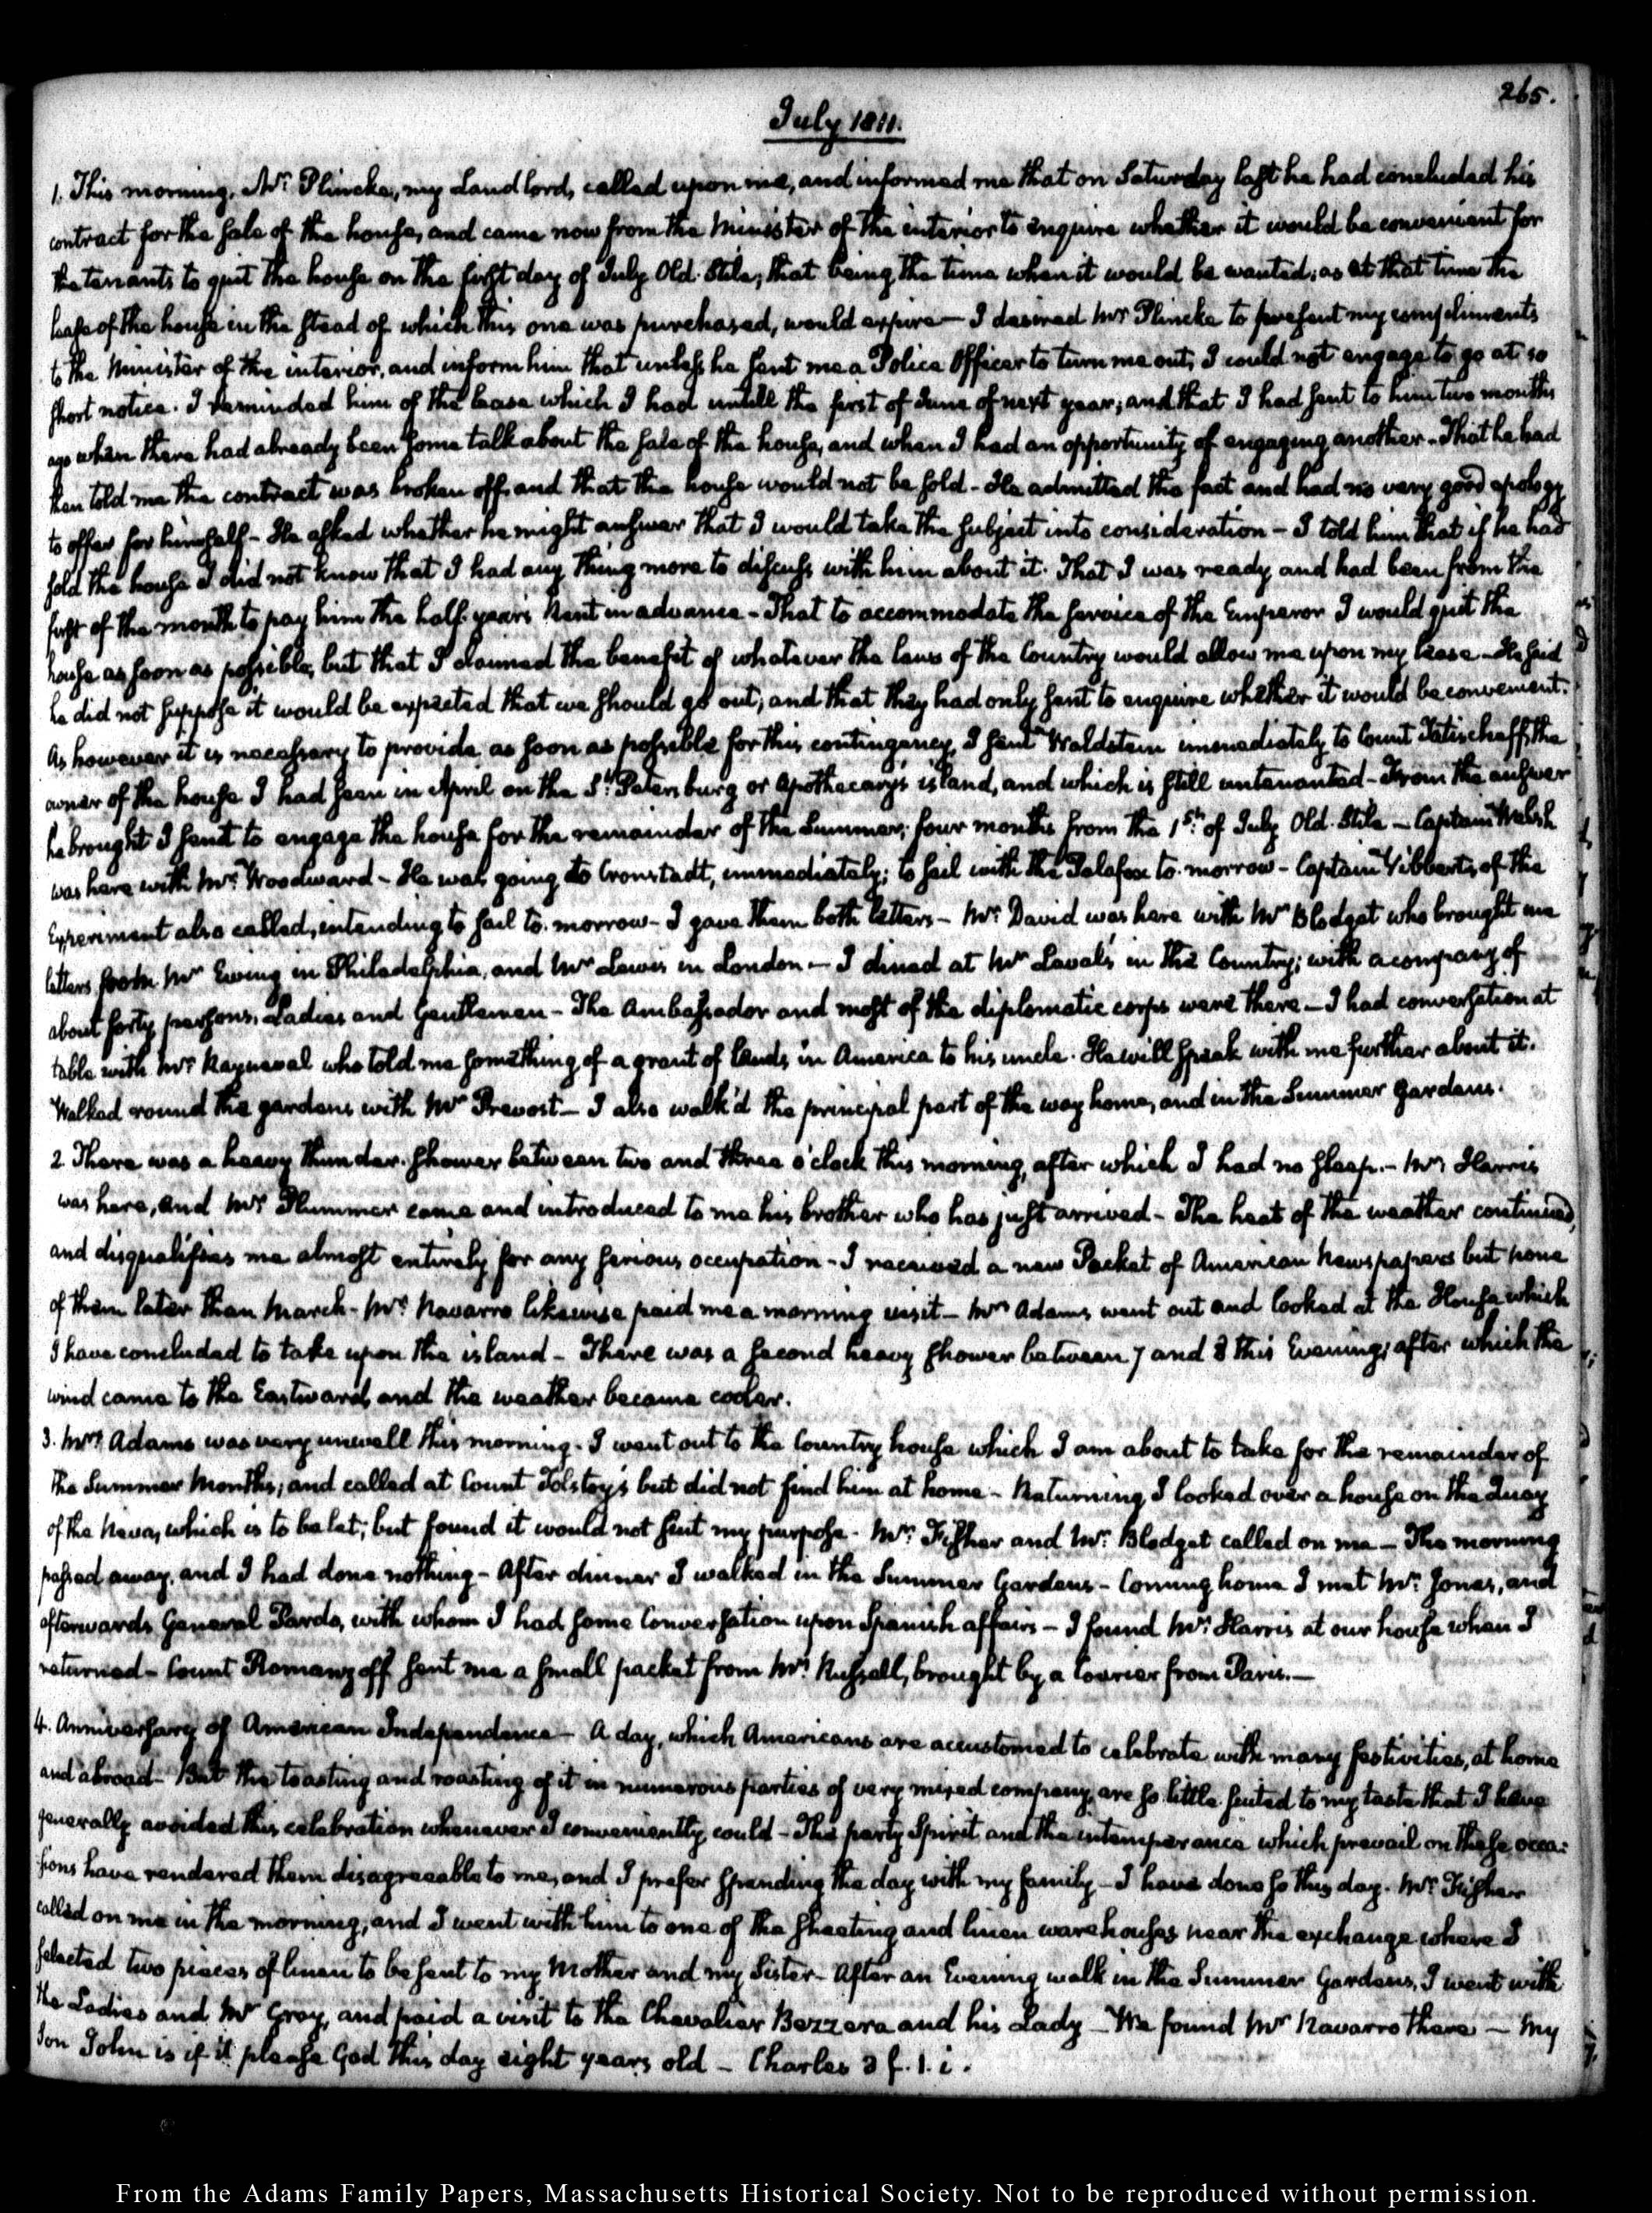 265.
July 1811.
1. This morning, Mr. Plincke, my Landlord, called upon me, and informed me that on Saturday last he had concluded his
contract for the sale of the house, and came now from the Minister of the interior to enquire whether it would be convenient for
the tenants to quit the house on the first day of July Old Stile; that being the time when it would be wanted; as at that time the
lease of the house in the stead of which this one was purchased, would expire — I desired Mr Plincke to present my compliments
to the Minister of the interior, and inform him that unless he sent me a Police Officer to turn me out, I could not engage to go at so
short notice. I reminded him of the lease which I had untill the first of June of next year; and that I had sent to him two months
ago when there had already been some talk about the sale of the house, and when I had an opportunity of engaging another - That he had
then told me the contract was broken off, and that the house would not be sold - He admitted the fact and had no very good apology
to offer for himself - He asked whether he might answer that I would take the subject into consideration - I told him that if he had
sold the house I did not know that I had any thing more to discuss with him about it. That I was ready and had been from the
first of the month to pay him the half year's Rent in advance - That to accommodate the service of the Emperor I would quit the
house as soon as possible, but that I claimed the benefit of whatever the laws of the Country would allow me upon my lease - He said
he did not suppose it would be expected that we should go out; and that they had only sent to enquire whether it would be convenient.
As however it is necessary to provide as soon as possible for this contingency, I sent Waldstein immediately to Count Tatischeff, the
owner of the house I had seen in April on the St. Petersburg or Apothecary's island, and which is still untenanted - From the answer
he brought I send to engage the house for the remainder of the Summer; four months from the 1st. of July Old Stile - Captain Welsh
was here with Mr. Woodward - He was going to Cronstadt, immediately; to sail with the Palafox to-morrow - Captain Vibberts, of the
Experiment also called, intending to sail to-morrow - I gave them both letters - Mr. David was here with Mr Blodget who brought me
letters from Mr Ewing in Philadelphia, and Mr Lewis in London - I dined at Mr Laval's in the Country; with a company of
about forty persons, Ladies and Gentlemen - The Ambassador and most of the diplomatic corps were there - I had conversation at
table with Mr. Rayneval who told me something of a grant of lands in America to his uncle. He will speak with me further about it.
Walked round the gardens with Mr Prevost - I also walk'd the principal part of the way home, and in the Summer Gardens.
2. There was a heavy thunder-shower between two and three o'clock this morning, after which I had no sleep. - Mr. Harris
was here, and Mr. Plummer came and introduced to me his brother who has just arrived - The heat of the weather continued,
and disqualifies me almost entirely for any serious occupation - I received a new Packet of American Newspapers but none
of them later than March - Mr. Navarro likewise paid me a morning visit - Mrs Adams went out and looked at the House which
I have concluded to take upon the island - There was a second heavy shower between 7 and 8 this Evening; after which the
wind came to the Eastward, and the weather became cooler.
3. Mrs. Adams was very unwell this morning - I went out to the Country house which I am about to take for the remainder of
the Summer Months; and called at Count Tolstoy's but did not find him at home - Returning I looked over a house on the Quay
of the Neva, which is to be let; but found it would not suit my purpose - Mr. Fisher and Mr. Blodget called on me - The morning
passed away, and I had done nothing - After dinner I walked in the Summer Gardens - Coming home I met Mr. Jones, and
afterwards General Pardo, with whom I had some Conversation upon Spanish affairs - I found Mr. Harris at our house when I
returned - Count Romanzoff sent me a small packet from Mr. Russell, brought by a Courier from Paris. —
4. Anniversary of American Independence - A day, which Americans are accustomed to celebrate with many festivities, at home
and abroad - But the toasting and roasting of it in numerous parties of very mixed company, are so little suited to my taste that I have
generally avoided this celebration whenever I conveniently could - The party Spirit, and the intemperance which prevail on these occa:
sions have rendered them disagreeable to me, and I prefer spending the day with my family - I have done so this day. Mr. Fisher
called on me in the morning, and I went with him to one of the sheeting and linen warehouses near the exchange where I
selected two pieces of linen to be sent to my Mother and my Sister - After an Evening walk in the Summer Gardens, I went with
the Ladies and Mr Gray, and paid a visit to the Chevalier Bezzera and his Lady - We found Mr Navarro there - My
Son John is if it please God this day eight years old - Charles 3 f. 1. i.
From the Adams Family Papers, Massachusetts Historical Society. Not to be reproduced without permission.